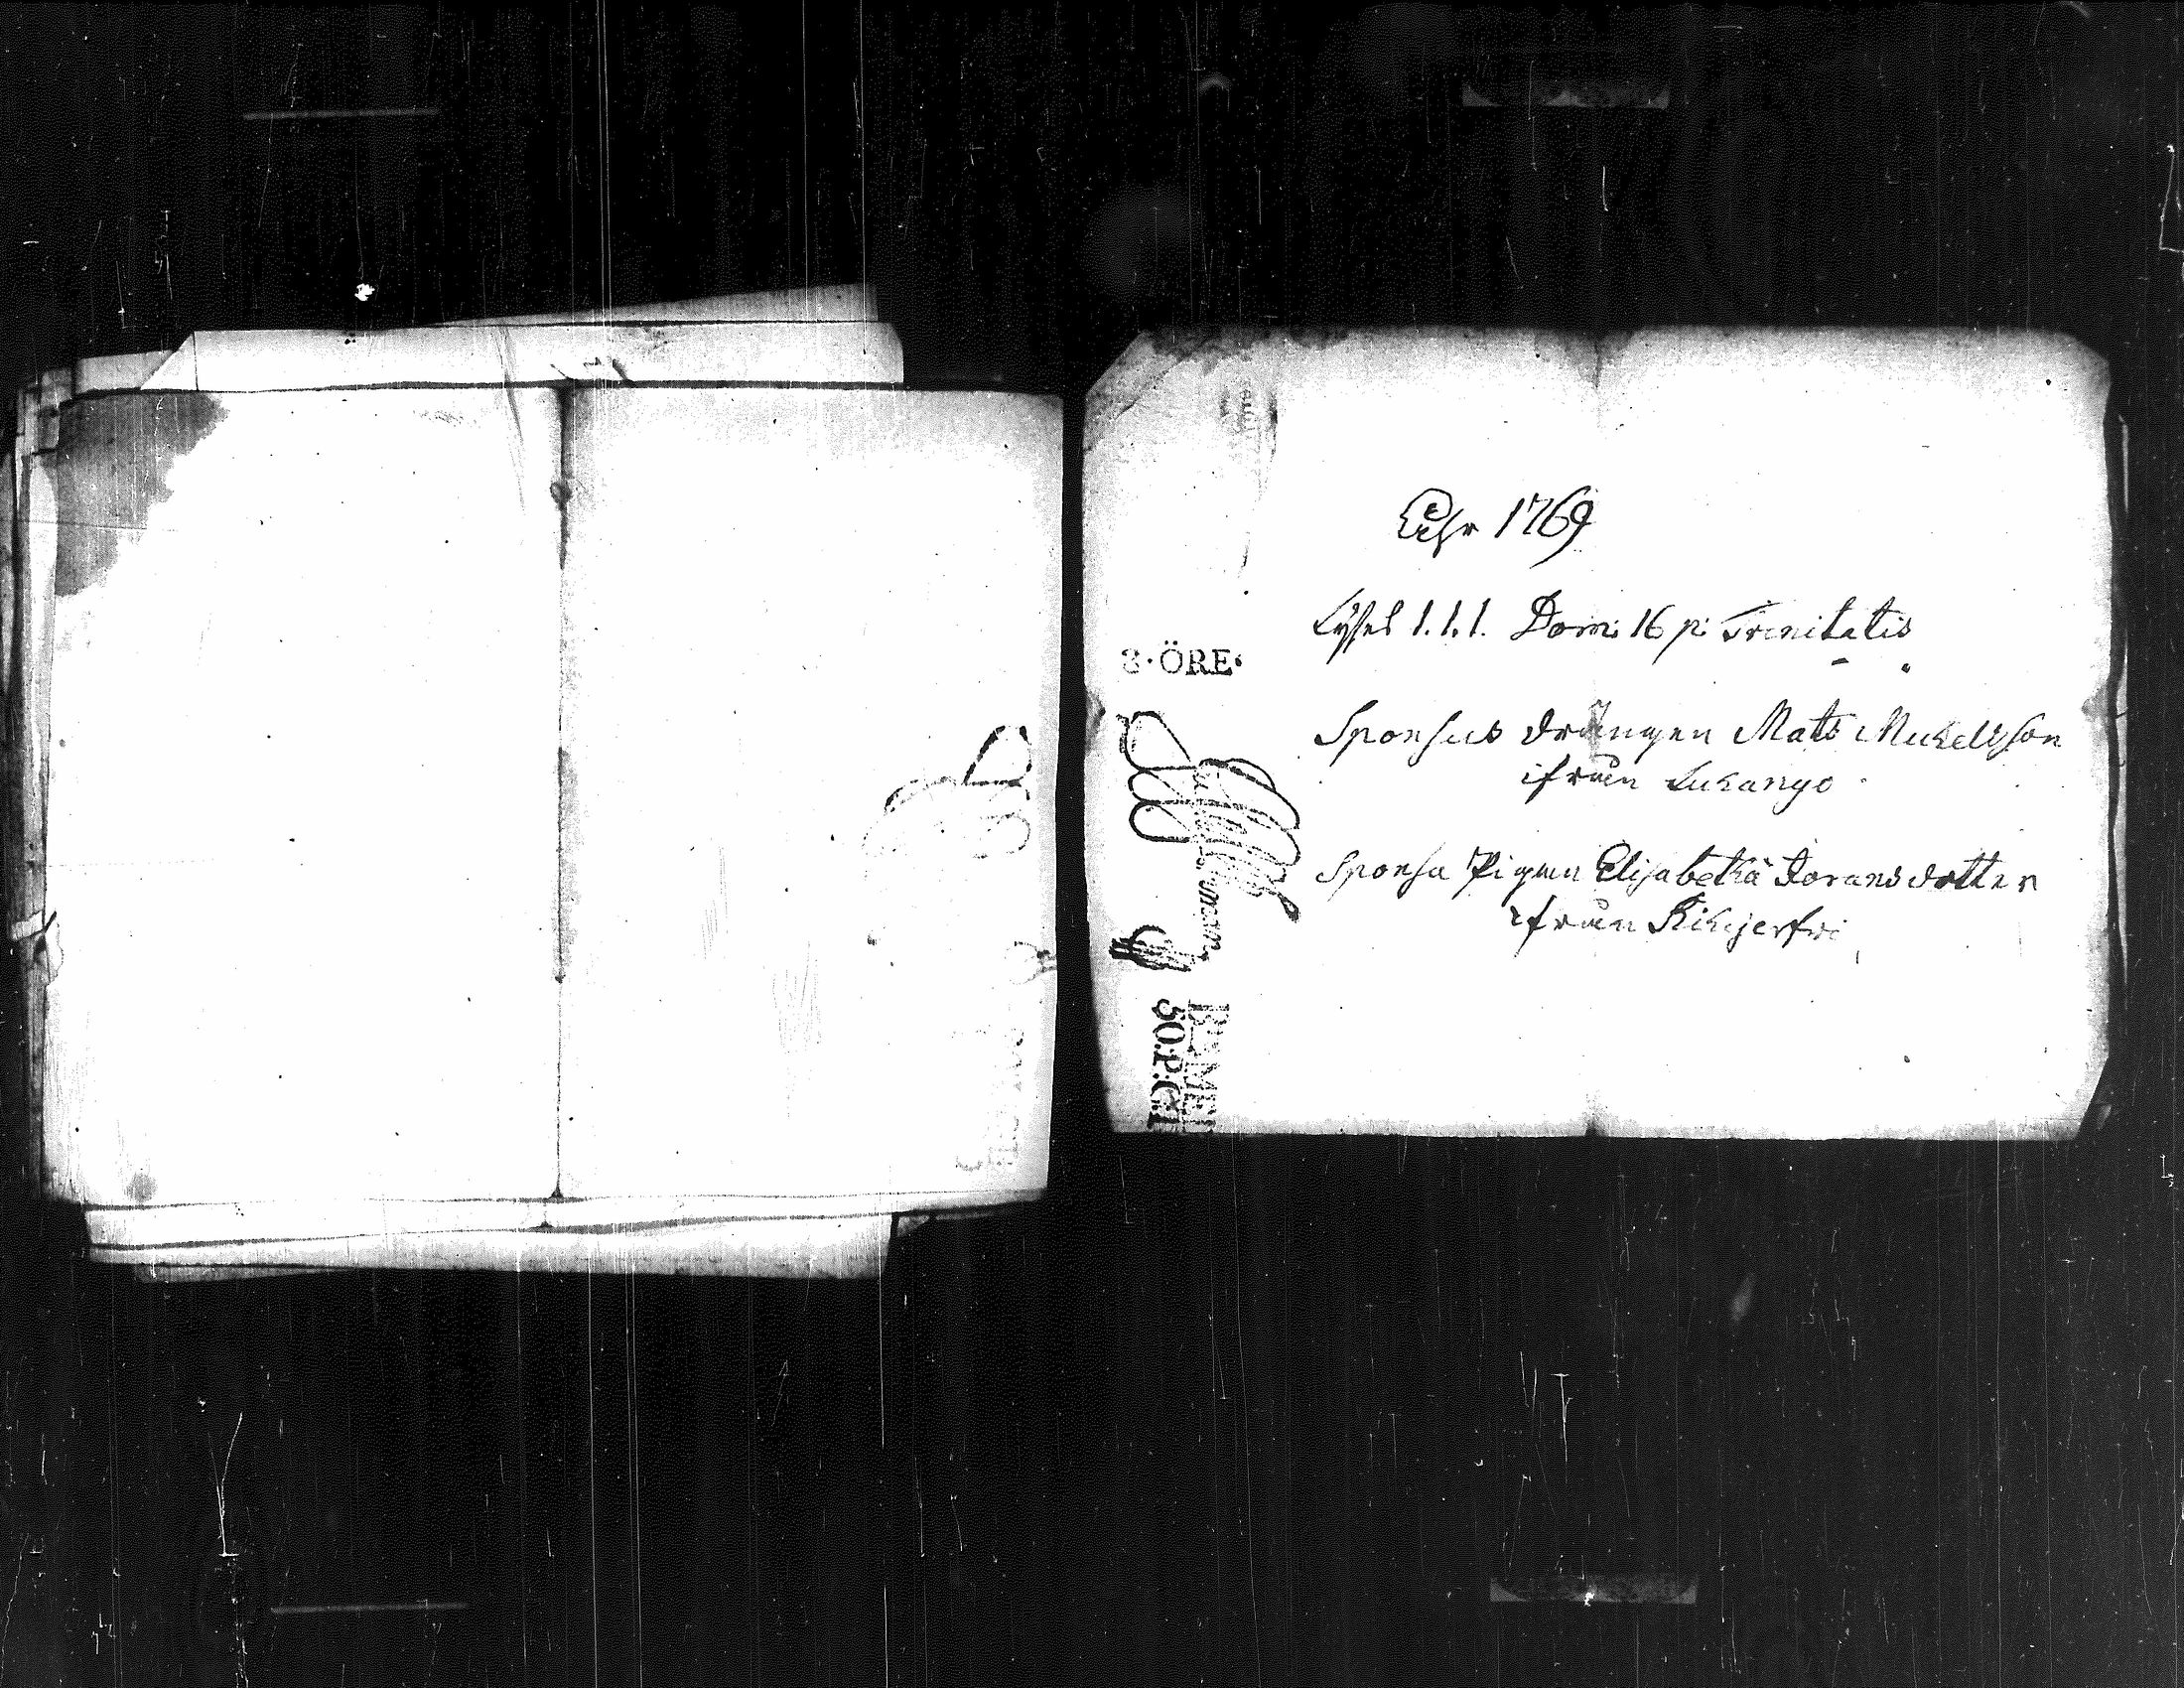 Åhr 1769
Lyses 1. 1. 1. Dom: 16 p: Trinitatis
8·ÖRE·
Sponsus drängen Mats Mickelsson
ifrån Lukango
Sponsa Pigan Elisabetha Joransdotter
ifrån Kikjerfvi